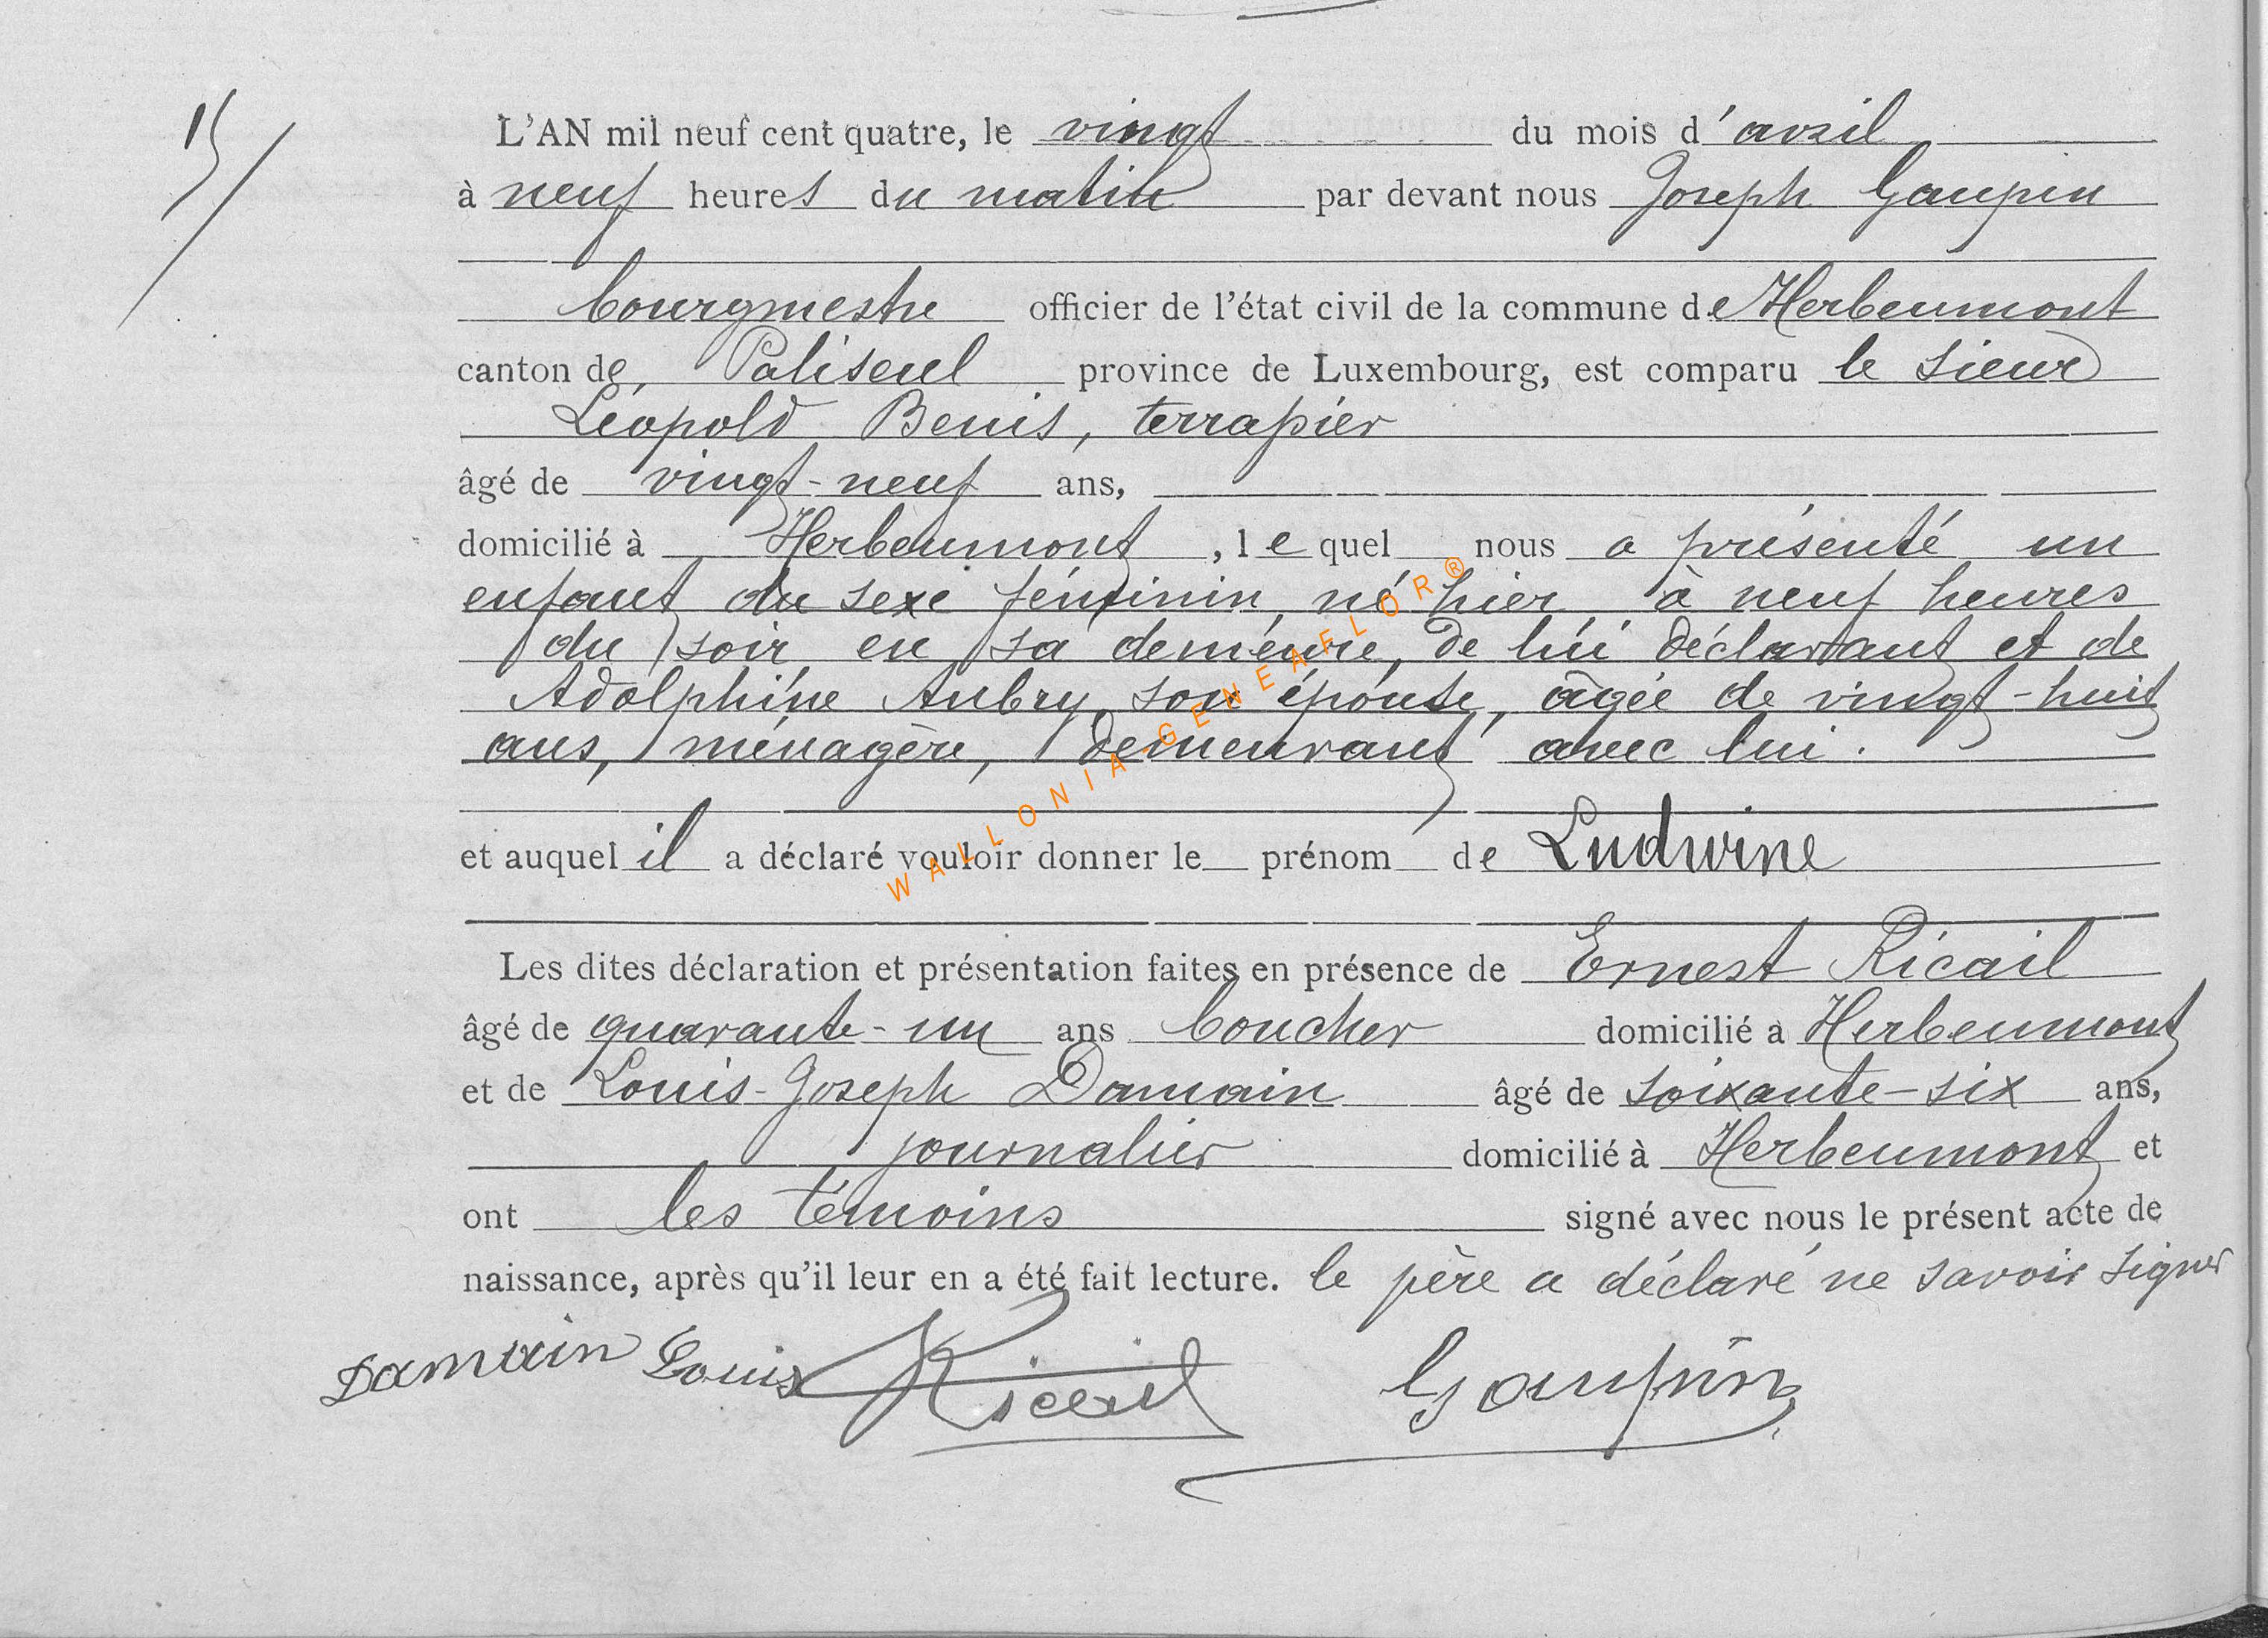 15/
L'AN mil neuf cent quatre, le vingt du mois d'avril
à neuf heures du matin par devant nous Joseph Gaupin
bourgmestre officier de l'état civil de la commune de Herbeumont
canton de Paliseul province de Luxembourg, est comparu le sieur
Léopold Benis, terrassier
âgé de vingt-neuf ans,
domicilié à Herbeumont, lequel nous a présenté un
enfant du sexe féminin, né hier à neuf heures
du soir en sa demeure, de lui déclarant et de
Adolphine Aubry, son épouse, âgée de vingt-huit
ans, ménagère, demeurant avec lui.
et auquel il a déclaré vouloir donner le prénom de Ludwine
Les dites déclaration et présentation faites en présence de Ernest Ricail
âgé de quarante-un ans boucher domicilié à Herbeumont
et de Louis-Joseph Damain âgé de soixante-six ans,
journalier domicilié à Herbeumont et
ont les témoins signé avec nous le présent acte de
naissance, après qu'il leur en a été fait lecture. le père a déclaré ne savoir signer
Damain Louis Ricail Gaupin
WALLONIA-GENEAFLOR®